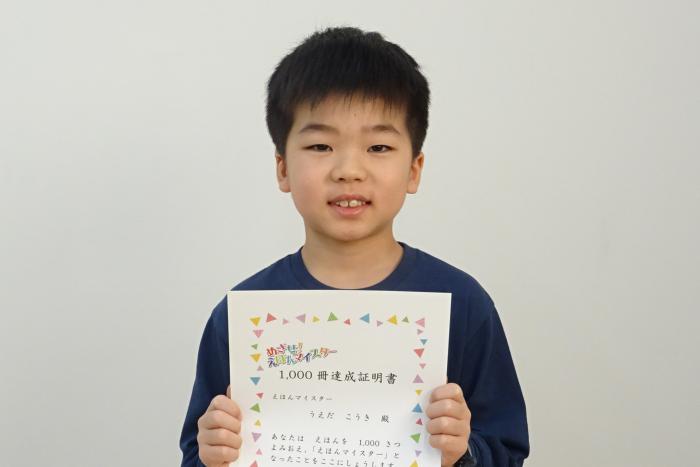 めざせ!
えほんマイスター
1,000 冊達成証明書
えほんマイスター
うえだ こうき 殿
あなたは えほんを 1,000 さつ
よみおえ、「えほんマイスター」と
なったことをここにしょうします